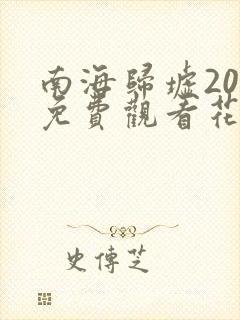 南海歸墟20
免費觀看花
史傳芝